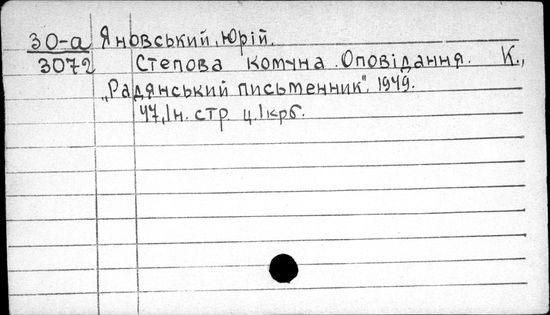 30-а Яновський, Юрій.
3072 Степова комуна. Оповідання. К.,
„Радянський письменник". 1949.
47,1н. стр ц.1крб.